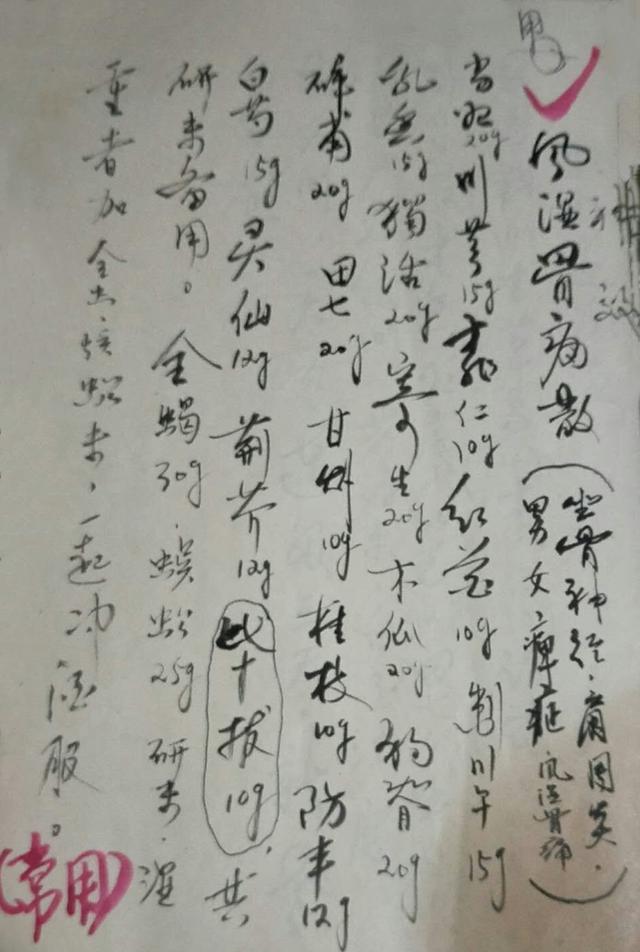 男
风湿骨病散(坐骨神经.肩周炎.
男女.痺症 风湿骨痛)
当归20g 川芎15g 桃仁10g 红花10g 制川午15g
乳香15g 獨活20g 寄生20g 木瓜20g 狗脊20g
碎甫20g 田七20g 甘10g 桂枝10g 防丰12g
白芍15g 灵仙12g 荆芥12g 十拔10g.共
研末备用。全蝎30g.蜈蚣25g 研末.湿
重者加全虫.蜈蚣末,一起冲酒服。
(常用)